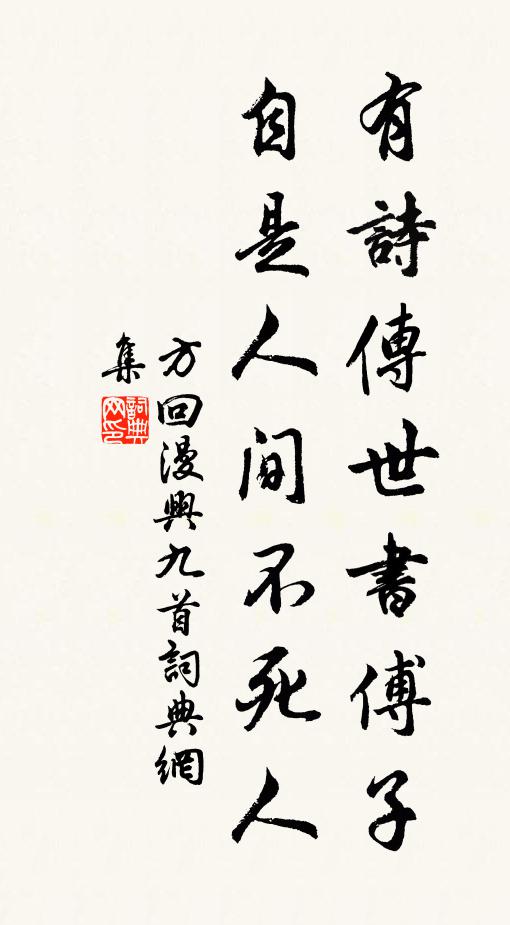 有詩傳世書傳子
自是人間不死人
方回漫興九首詞典網
集
詞典网印